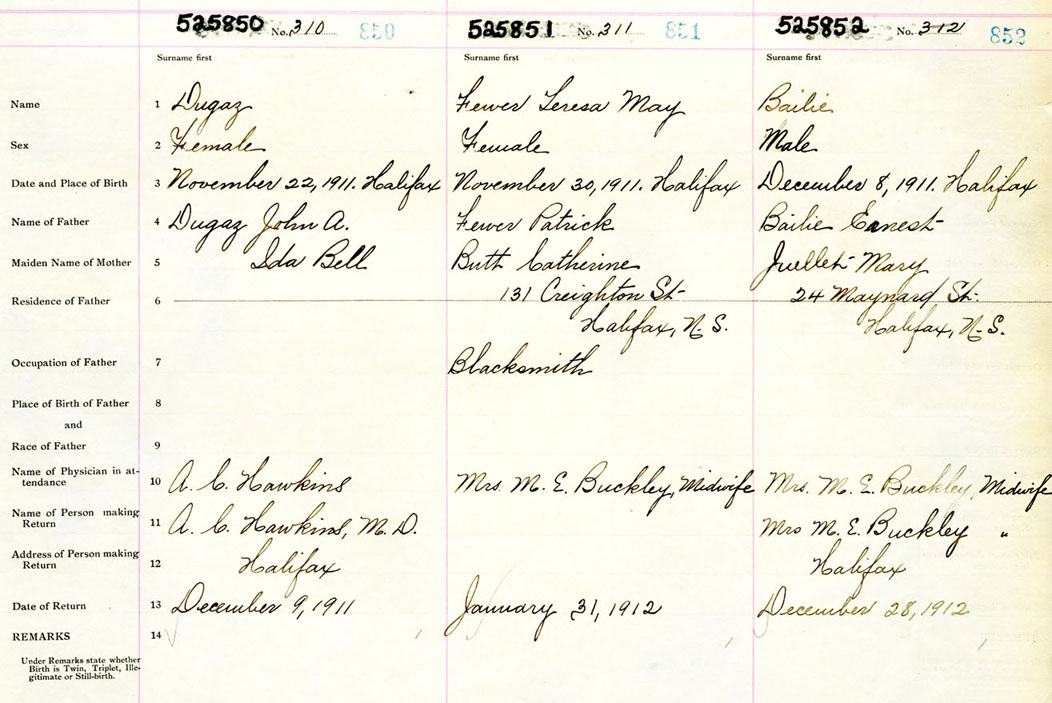 525850 No. 310 850 525851 No. 311 851 525852 No. 312 852
Surname first Surname first Surname first
Name 1 Dugaz Fewer Teresa May Bailie
Sex 2 Female Female Male
Date and Place of Birth 3 November 22, 1911. Halifax November 30, 1911. Halifax December 8, 1911. Halifax
Name of Father 4 Dugaz John A. Fewer Patrick Bailie Ernest
Maiden Name of Mother 5 Ida Bell Butt Catherine Juellet Mary
Residence of Father 6 131 Creighton St- 24 Maynard St.
Halifax, N.S. Halifax, N.S.
Occupation of Father 7 Blacksmith
Place of Birth of Father 8
and
Race of Father 9
Name of Physician in at-
tendance 10 A. C. Hawkins Mrs. M. E. Buckley, Midwife Mrs. M. E. Buckley, Midwife
Name of Person making
Return 11 A. C. Hawkins, M.D. Mrs M. E. Buckley "
Address of Person making
Return 12 Halifax Halifax
Date of Return 13 December 9, 1911 January 31, 1912 December 28, 1912
REMARKS 14
Under Remarks state whether
Birth is Twin, Triplet, Ille-
gitimate or Still-birth.